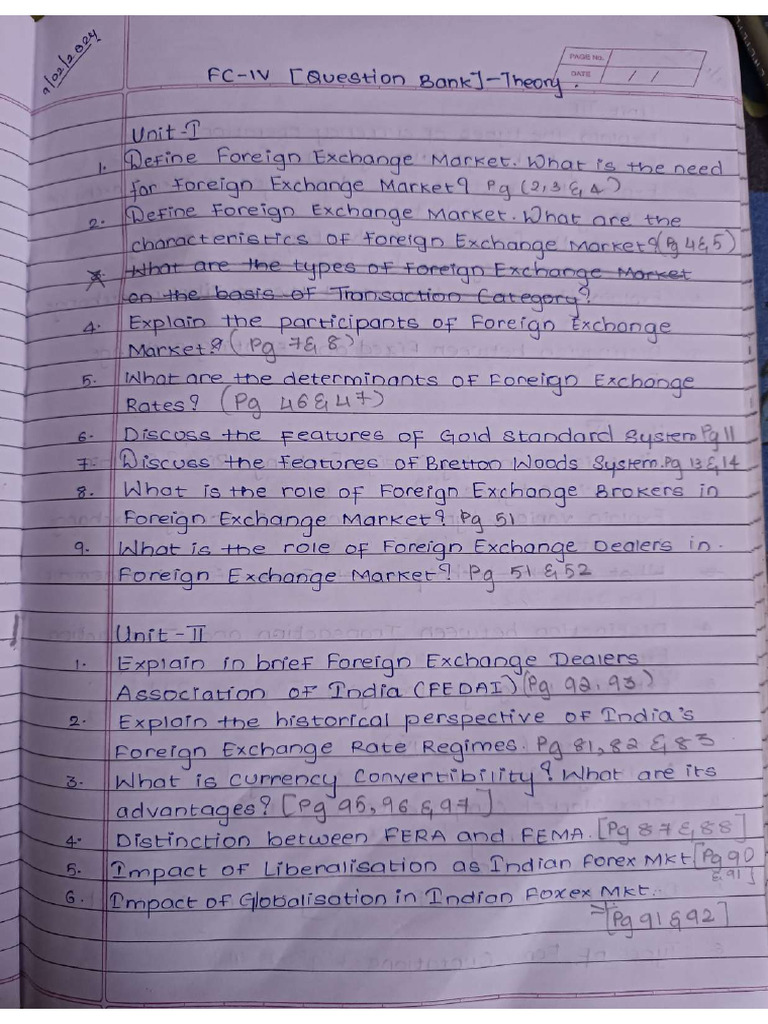 9/02/2024
PAGE No.
DATE / /
FC-IV [Question Bank]-Theory.
Unit-I
1. Define Foreign Exchange Market. What is the need
for Foreign Exchange Market? Pg (2,3 & 4)
2. Define Foreign Exchange Market. What are the
characteristics of Foreign Exchange Market? (Pg 4&5)
What are the types of Foreign Exchange Market
on the basis of Transaction Category?
4. Explain the participants of Foreign Exchange
Market? (Pg. 7 & 8)
5. What are the determinants of Foreign Exchange
Rates? (Pg 46 & 47)
6. Discuss the features of Gold Standard System Pg 11
7. Discuss the features of Bretton Woods System. Pg 13 & 14
8. What is the role of Foreign Exchange Brokers in
Foreign Exchange Market? Pg 51
9. What is the role of Foreign Exchange Dealers in.
Foreign Exchange Market? Pg 51 & 52
Unit-II
1. Explain in brief Foreign Exchange Dealers
Association of India (FEDAI) (Pg 92, 93)
2. Explain the historical perspective of India's
Foreign Exchange Rate Regimes. Pg 81, 82 & 83
3. What is currency Convertibility? What are its
advantages? [Pg 95, 96 & 97]
4. Distinction between FERA and FEMA. [Pg 87 & 88]
5. Impact of Liberalisation as Indian Forex Mkt [Pg 90
& 91]
6. Impact of Globalisation in Indian Foxex Mkt.
[Pg 91 & 92]